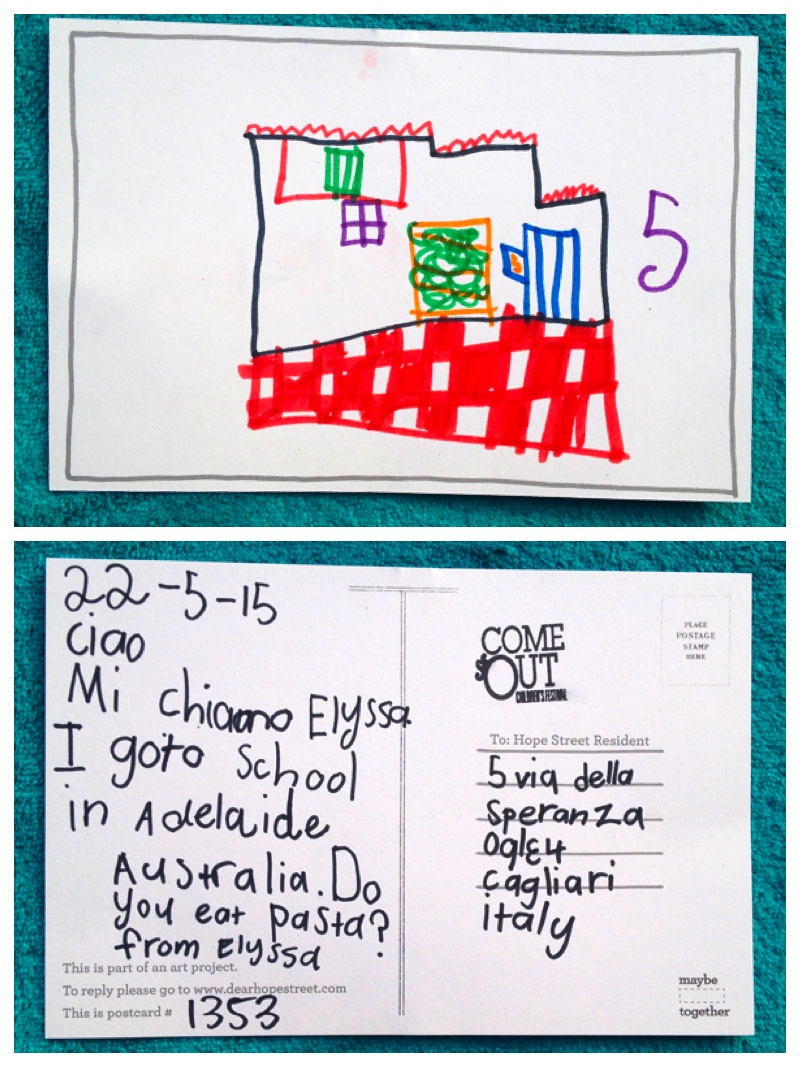 5
22-5-15
ciao
Mi chiamo Elyssa
I goto School
in Adelaide
Australia. Do
you eat pasta?
from Elyssa
This is part of an art project.
To reply please go to www.dearhopestreet.com
This is postcard # 1353
COME
OUT
CHILDREN'S FESTIVAL
PLACE
POSTAGE
STAMP
HERE
To: Hope Street Resident
5 via della
Speranza
cagliari
italy
maybe
together